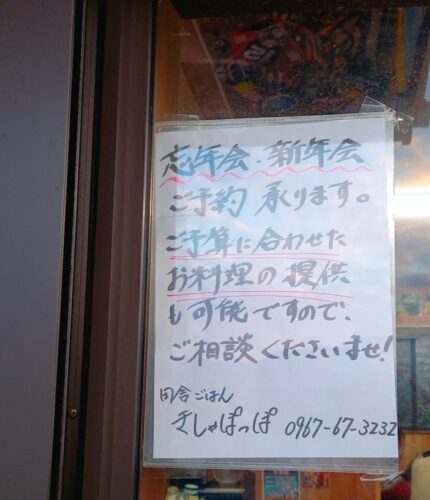 忘年会・新年会
ご予約承ります。
ご予算に合わせた
お料理の提供
も可能ですので、
ご相談くださいませ!
田舎ごはん
きしゃぽっぽ 0967-67-3232